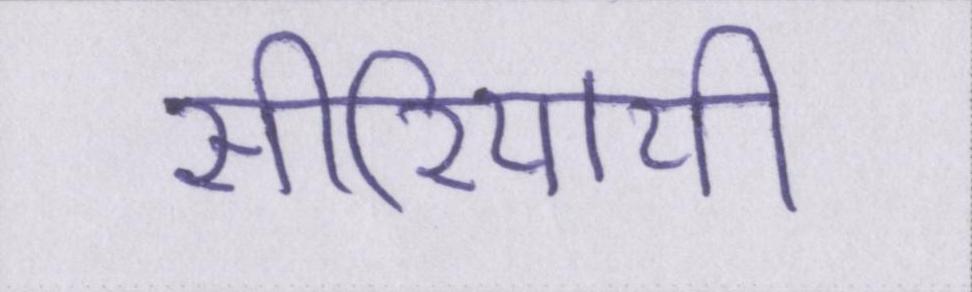 सीरियायी